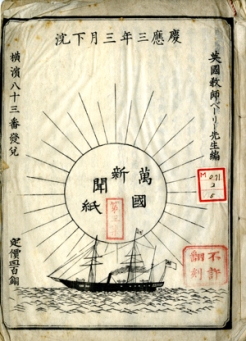 慶應三年三月下浣
英國教師ベーリー先生編
萬國
新聞
紙
横濱八十三番發兌
定價四百銅
不許
翻刻